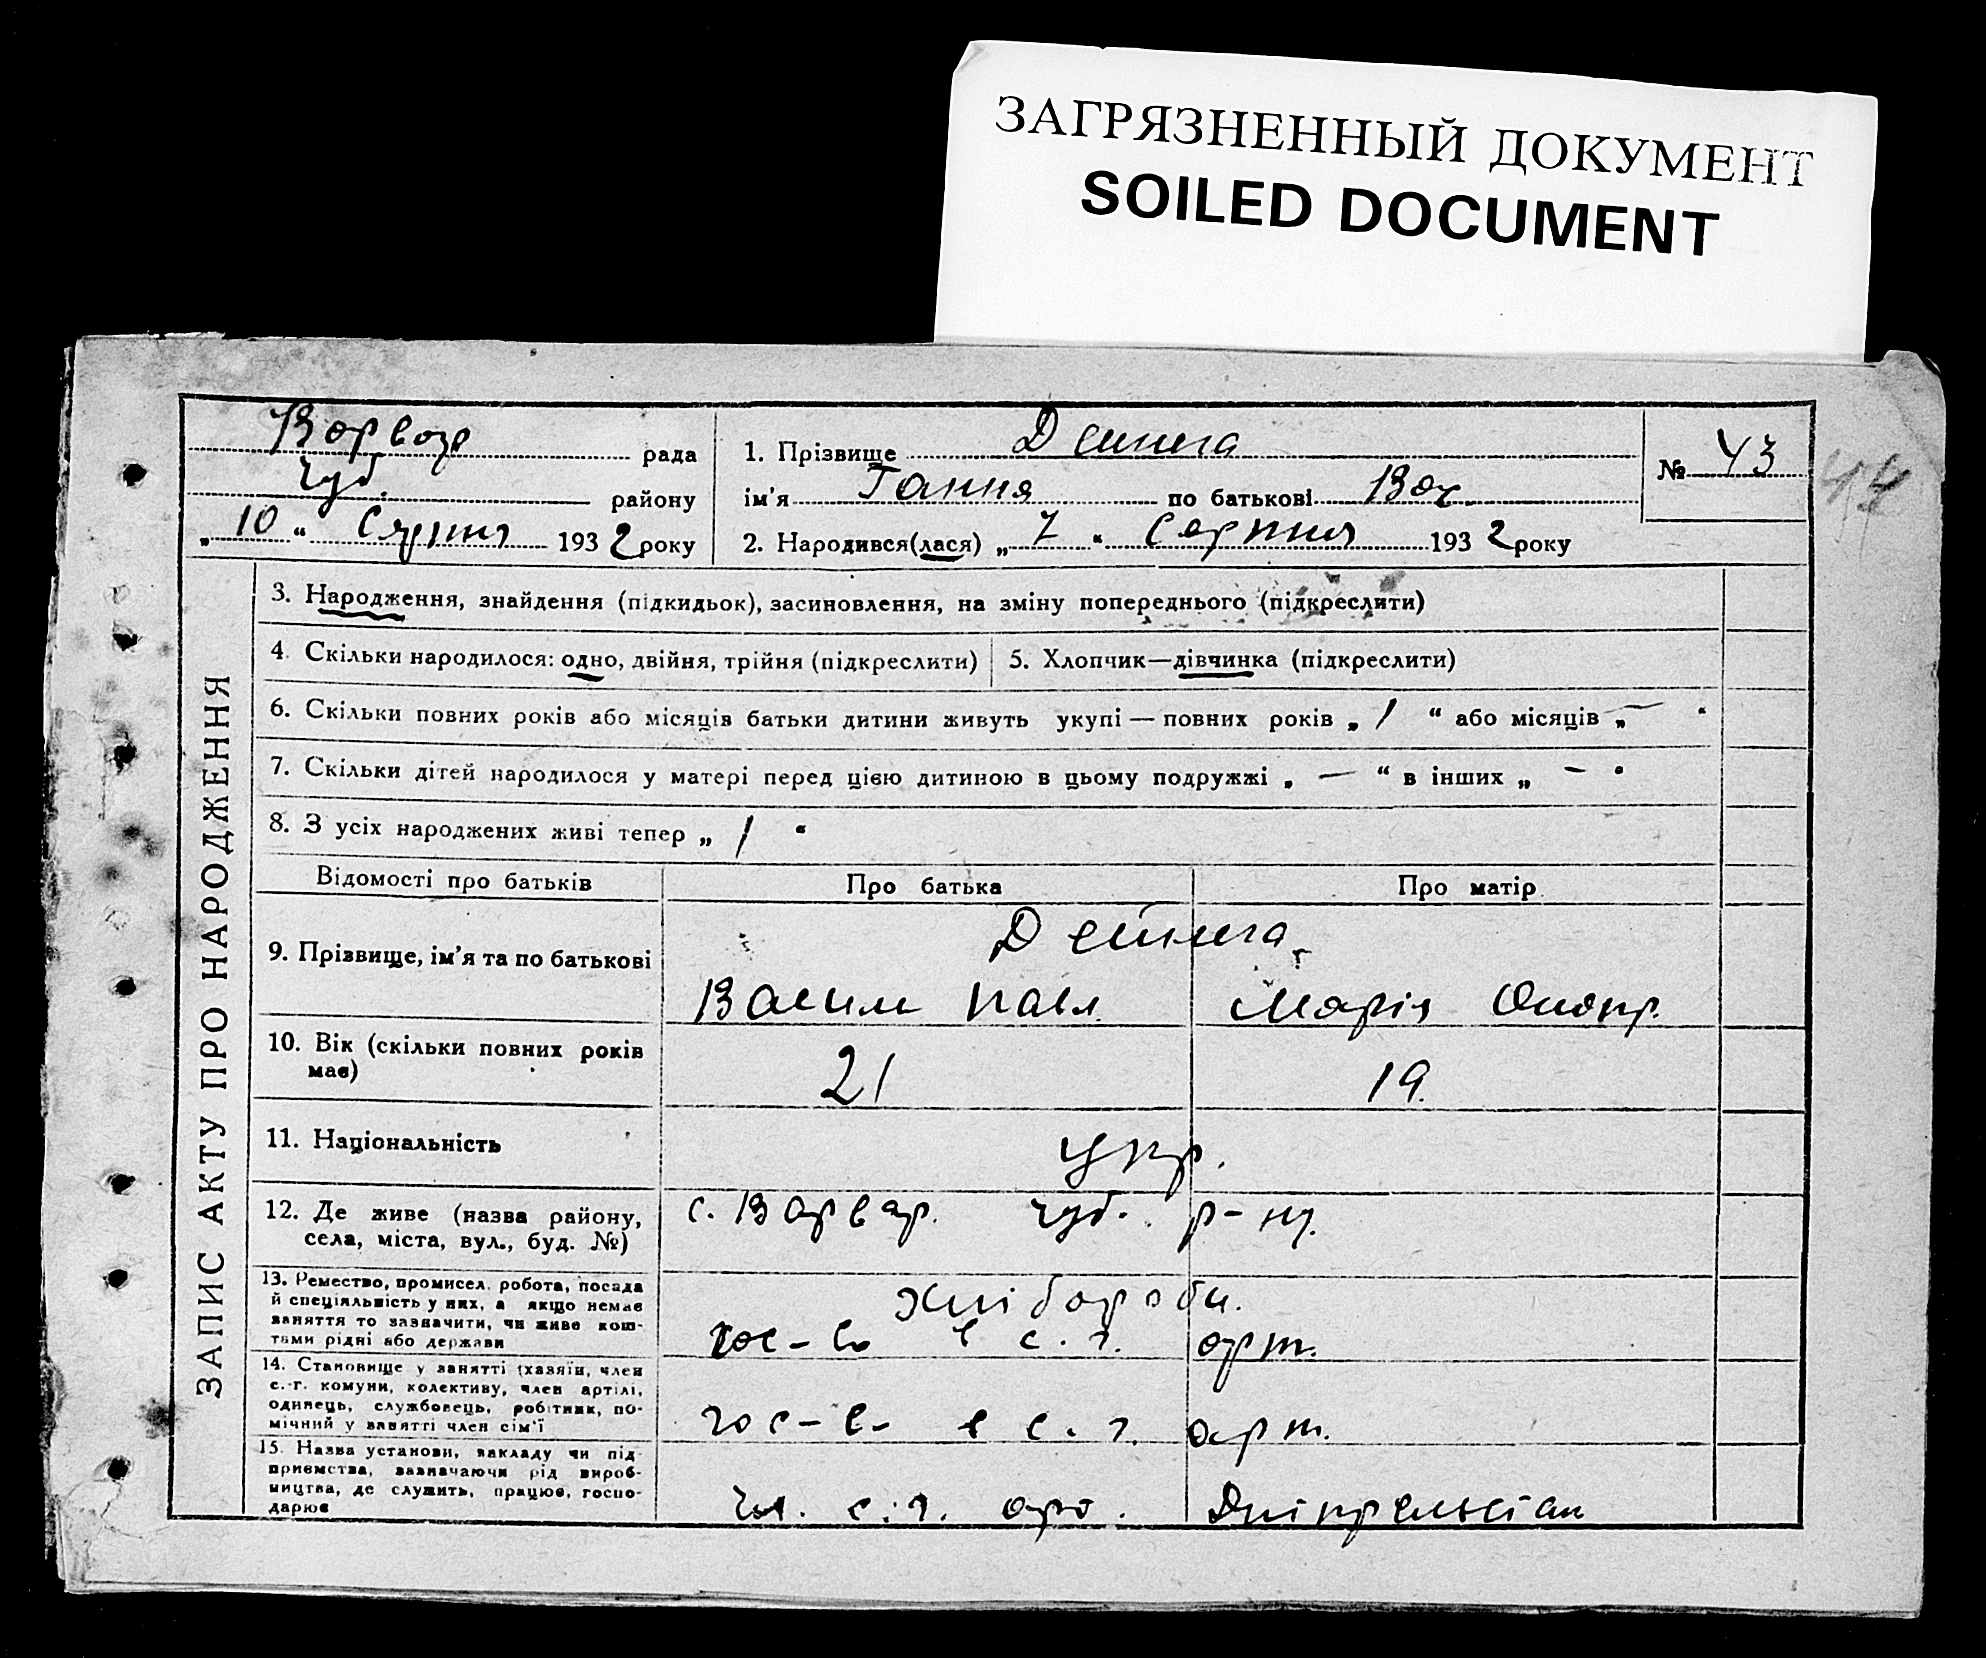 ЗАГРЯЗНЕННЫЙ ДОКУМЕНТ
SOILED DOCUMENT
рада
Чуб. району
„ 10 “ Серпня 1932 року
1. Прізвище
ім'я Гання по батькові Вас.
2. Народився(лася) „ 7 “ Серпня 1932 року
№ 43
44
ЗАПИС АКТУ ПРО НАРОДЖЕННЯ
3. Народження, знайдення (підкидьок), засиновлення, на зміну попереднього (підкреслити)
4. Скільки народилося: одно, двійня, трійня (підкреслити)
5. Хлопчик—дівчинка (підкреслити)
6. Скільки повних років або місяців батьки дитини живуть укупі — повних років „ 1 “ або місяців „ — “
7. Скільки дітей народилося у матері перед цією дитиною в цьому подружжі „ — “ в інших „ — “
8. З усіх народжених живі тепер „ 1 “
Відомості про батьків
Про батька
Про матір
9. Прізвище, ім'я та по батькові
Павл.
Марія
10. Вік (скільки повних років
має)
21
19.
11. Національність
Укр.
12. Де живе (назва району,
села, міста, вул., буд. №)
с. Варвар. Чуб. р-ну.
13. Ремество, промисел, робота, посада
й спеціяльність у них, а якщо немає
заняття то зазначити, чи живе кош-
тами рідні або держави
Хлібороби.
гос-во в с. г. арт.
14. Становище у занятті (хазяїн, член
с.-г. комуни, колективу, член артілі,
одинець, службовець, робітник, по-
мічний у занятті член сім'ї
гос-в- в с. г. арт.
15. Назва установи, закладу чи під-
приємства, зазначаючи рід вироб-
ництва, де служить, працює, госпо-
дарює
чл. с. г. арт.